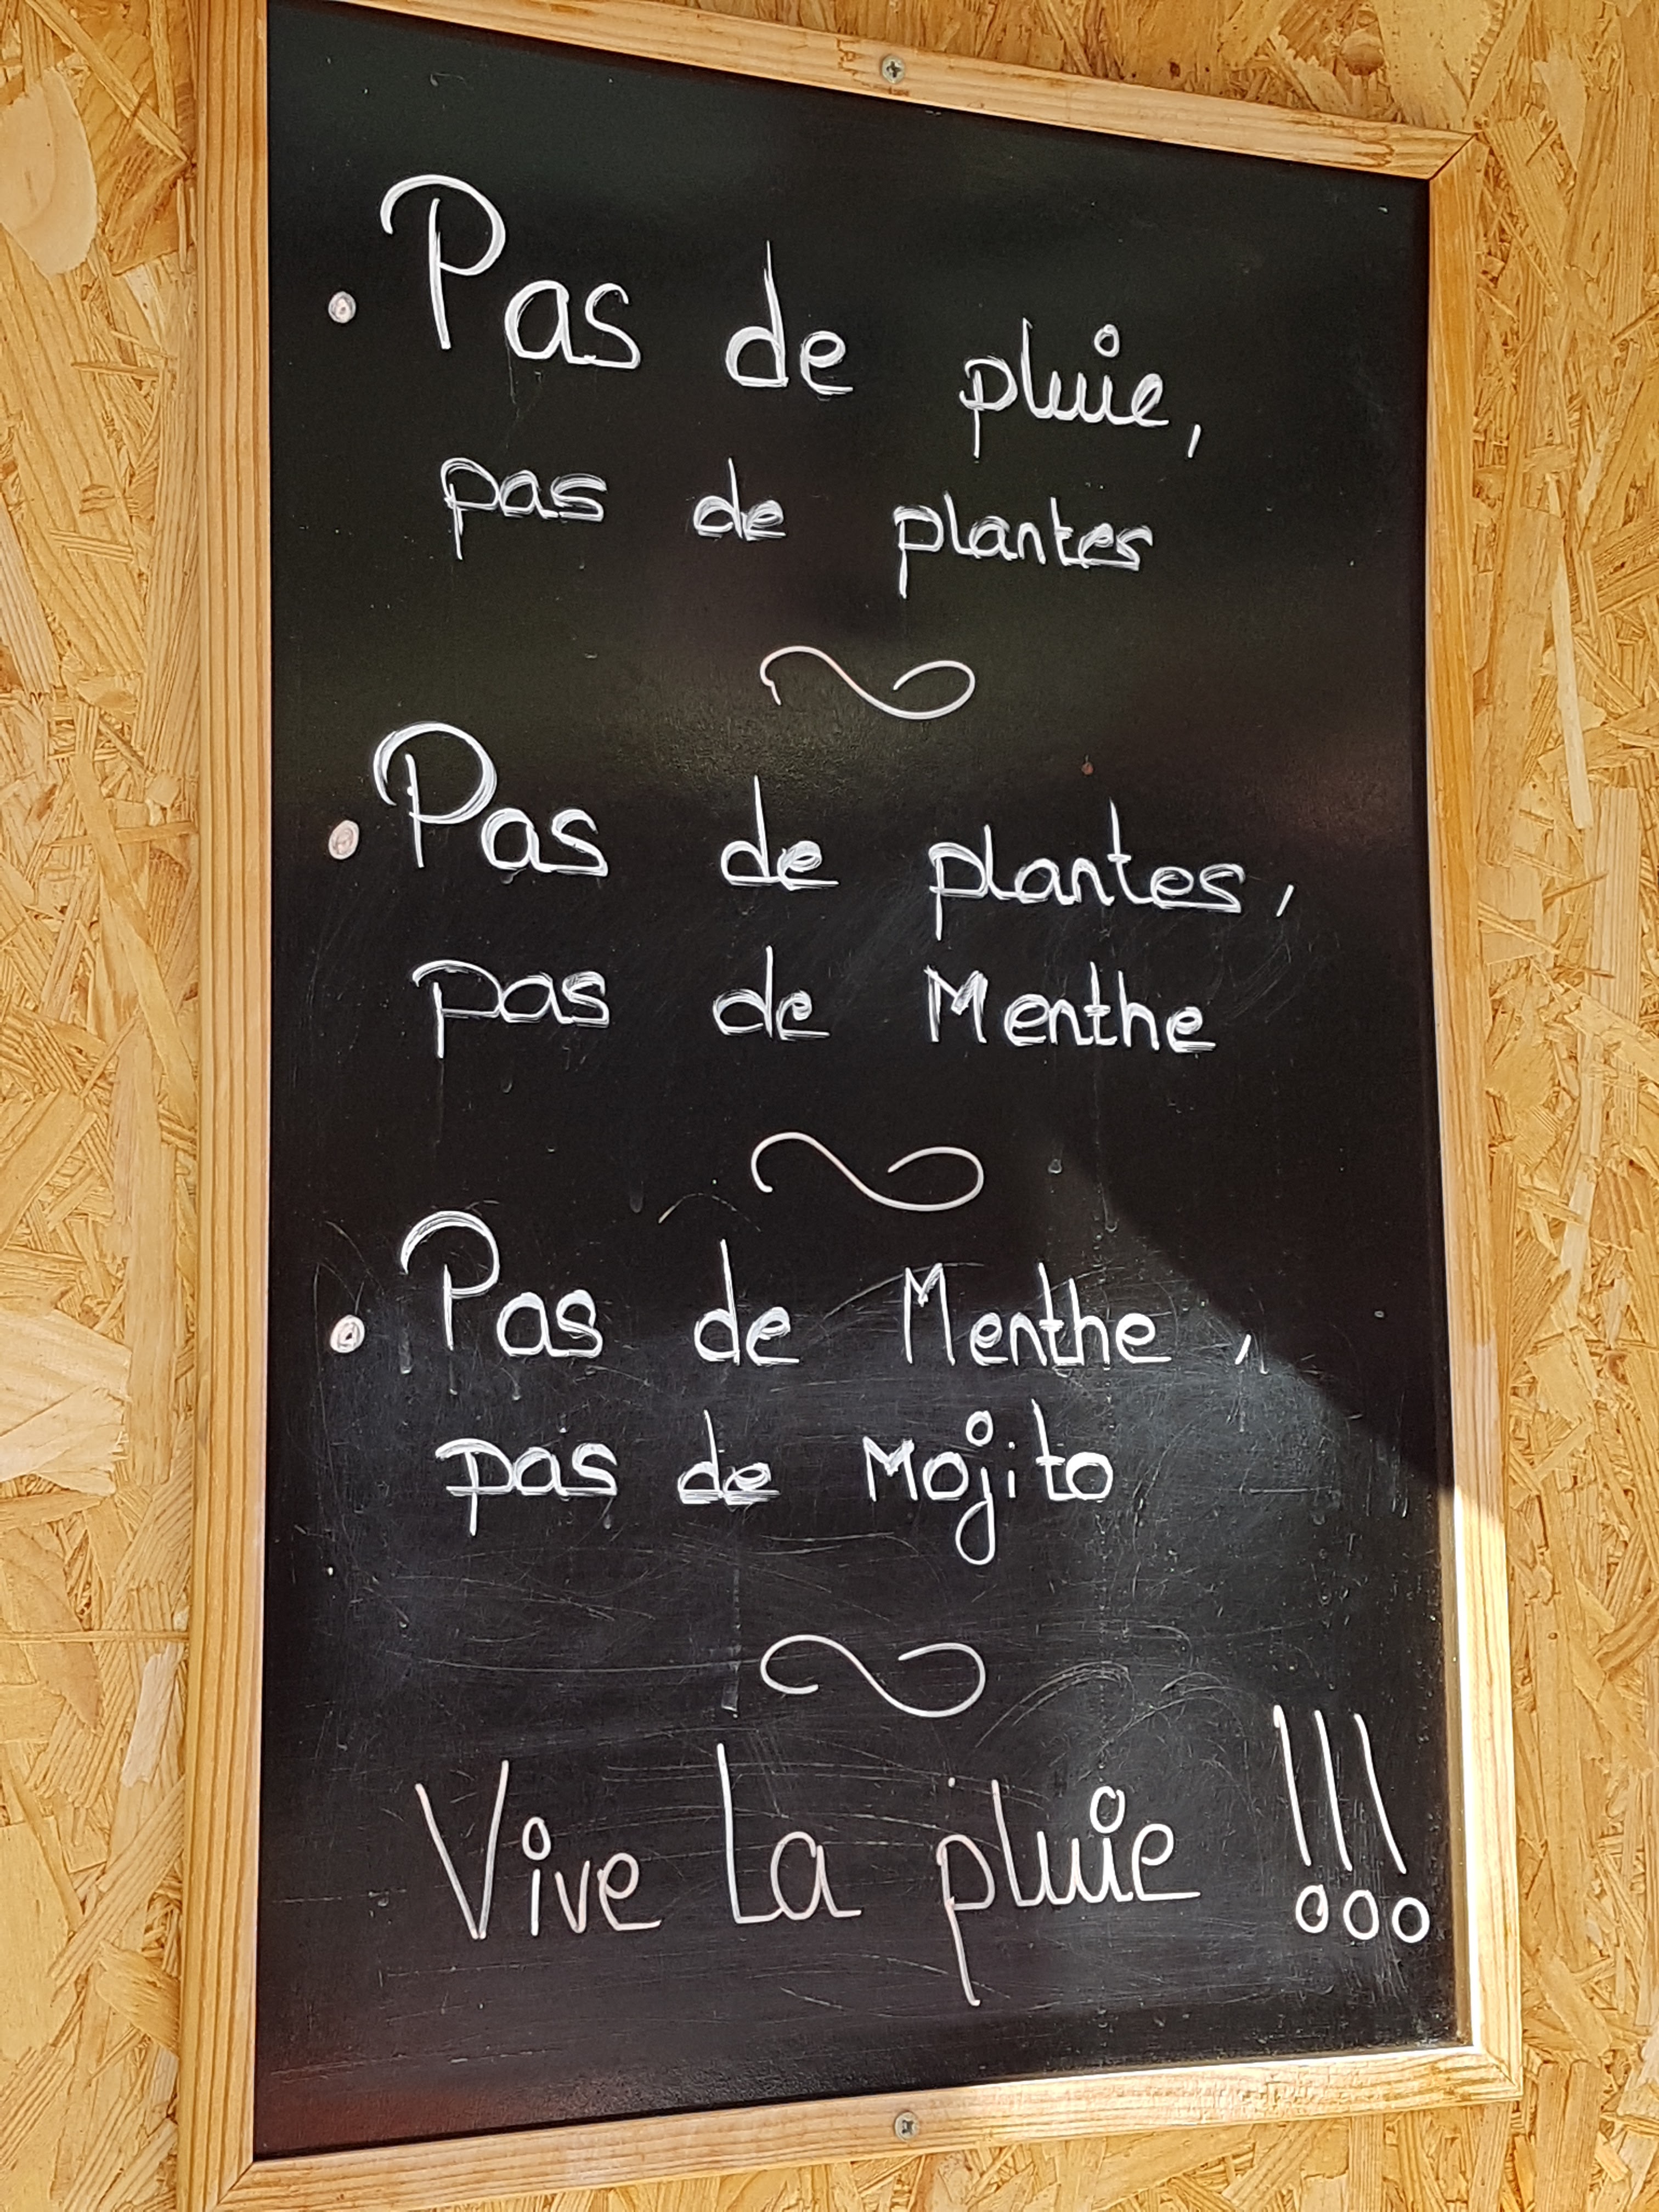 • Pas de pluie,
pas de plantes
~
• Pas de plantes,
pas de Menthe
~
• Pas de Menthe,
pas de Mojito
~
Vive La pluie !!!